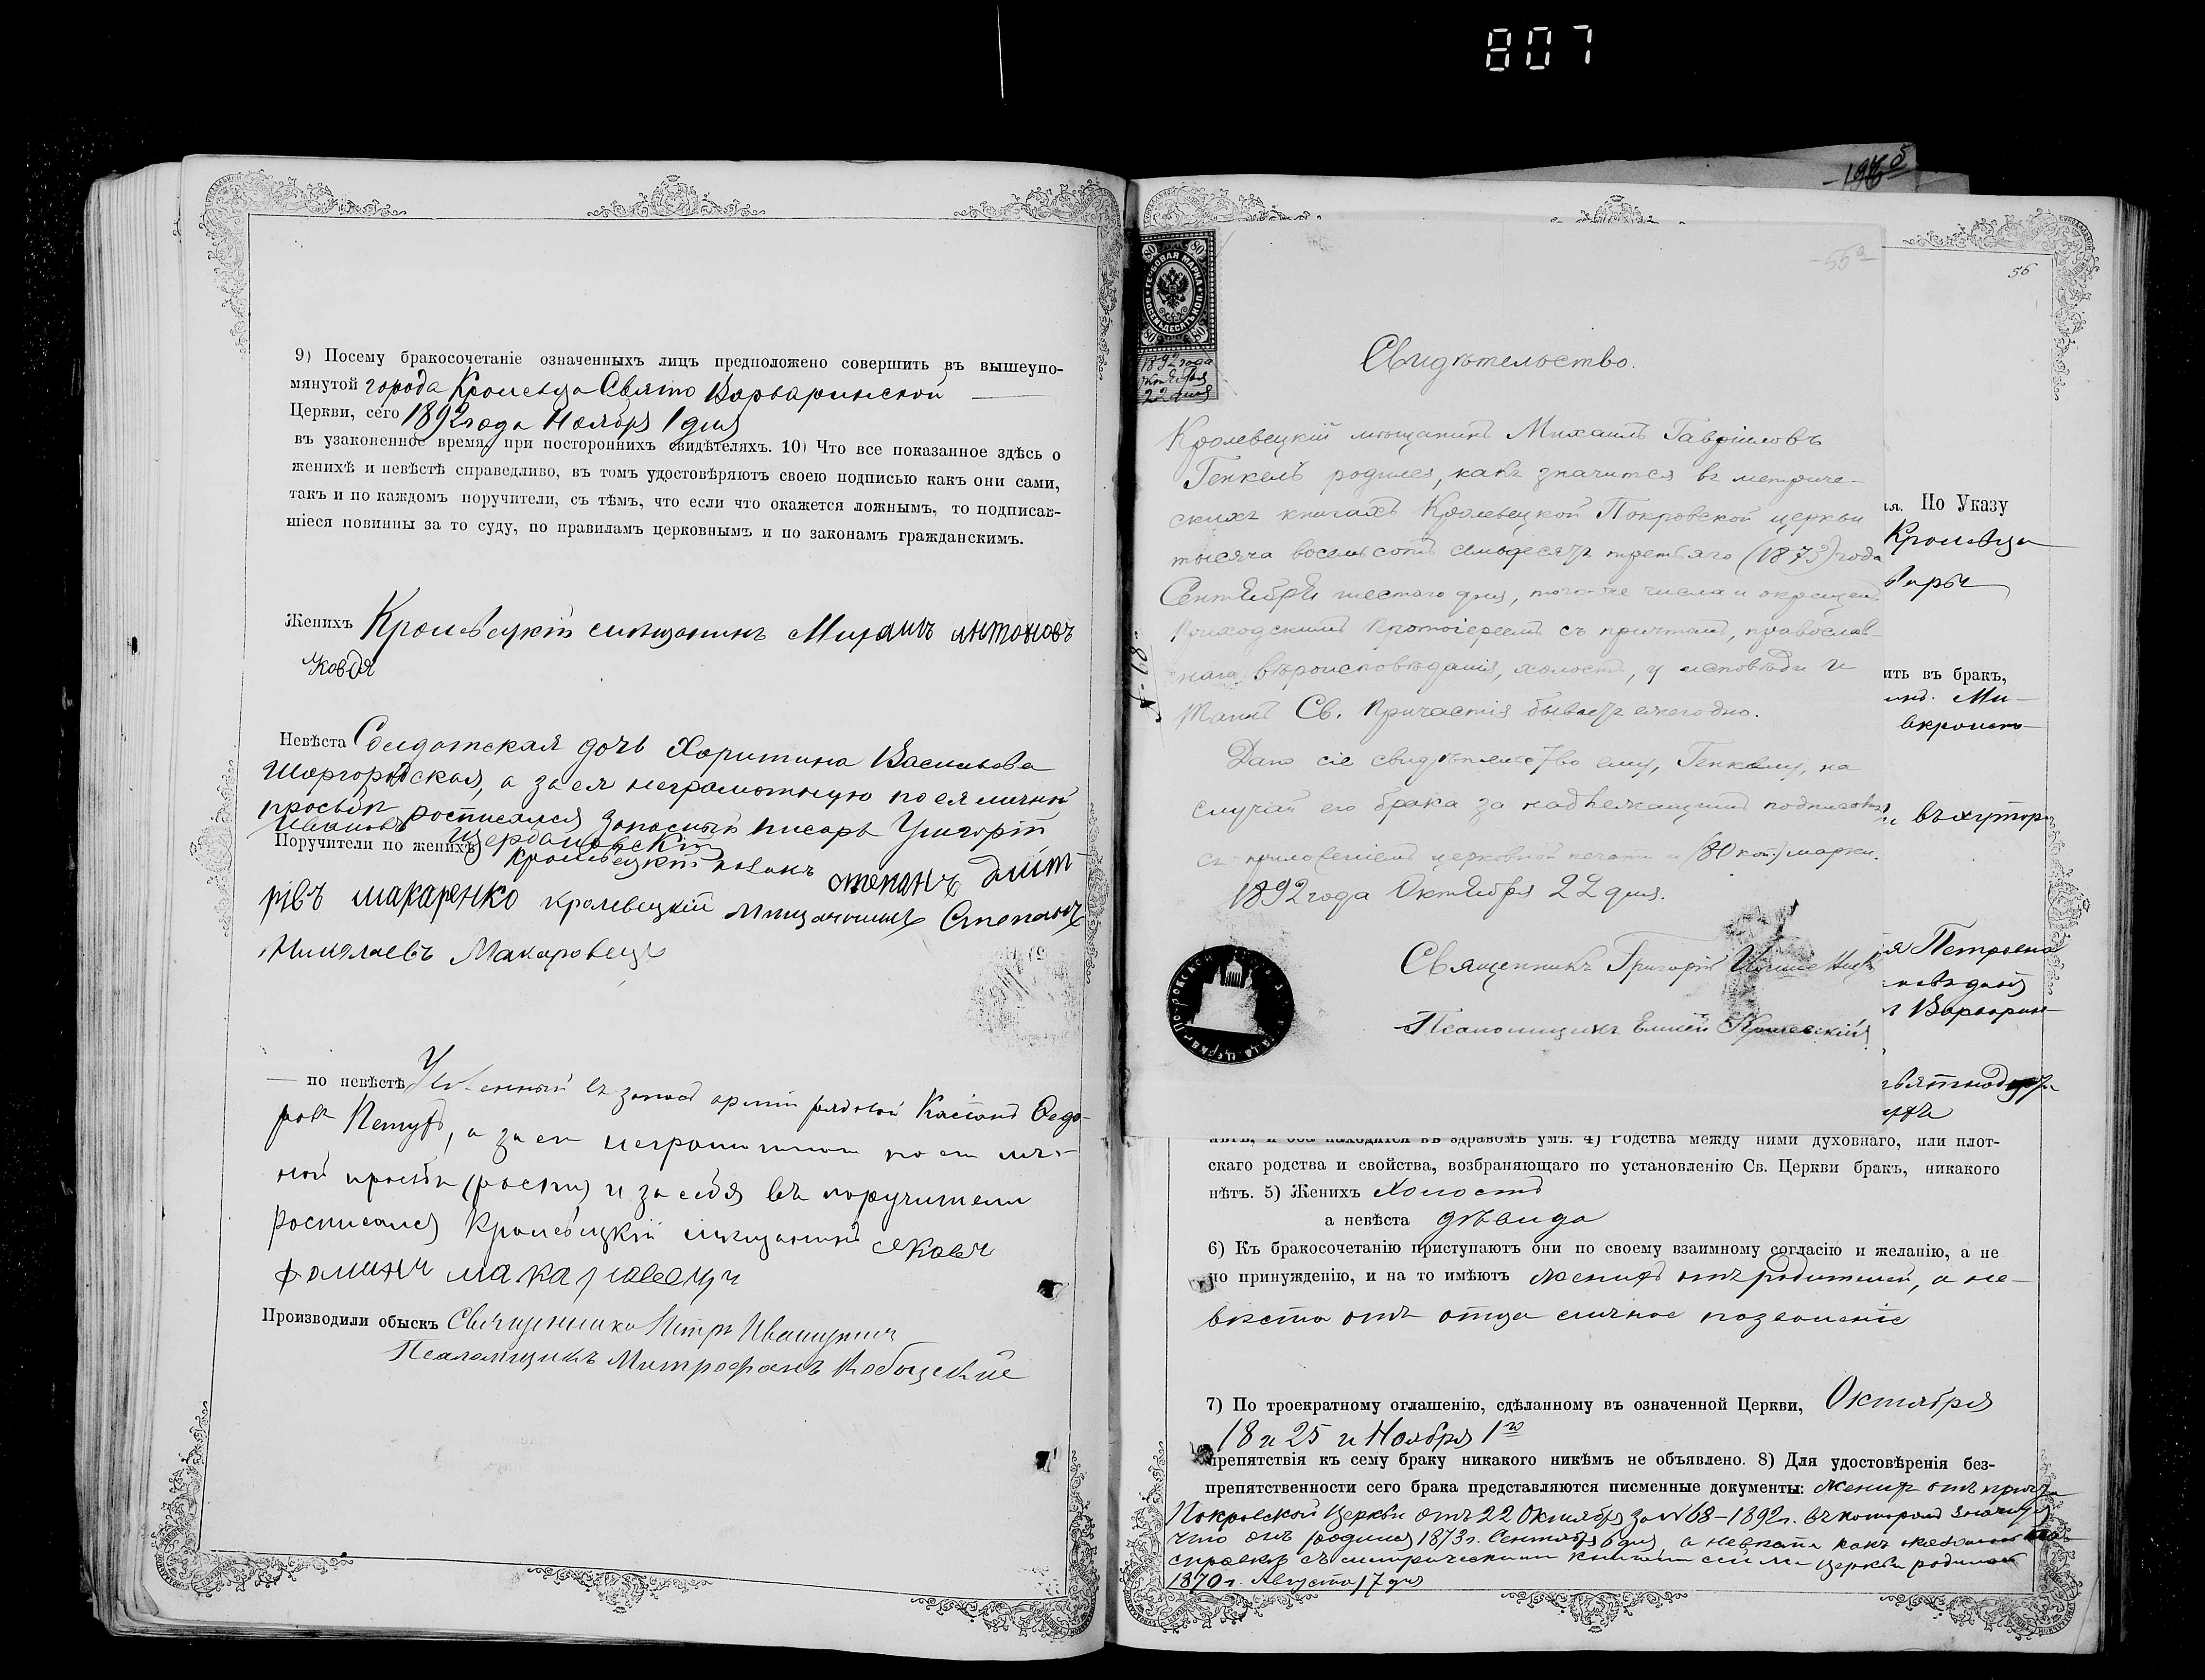 807
9) Посему бракосочетаніе означенныхъ лицъ предположено совершить въ вышеупо-
мянутой города Кролевца Свято Варваринской
Церкви, сего 1892 года Ноября 1 дня
въ узаконенное время, при постороннихъ свидѣтеляхъ. 10) Что все показанное здѣсь о
женихѣ и невѣстѣ справедливо, въ томъ удостовѣряютъ своею подписью какъ они сами,
такъ и по каждомъ поручители, съ тѣмъ, что если что окажется ложнымъ, то подписав-
шіеся повинны за то суду, по правиламъ церковнымъ и по законамъ гражданскимъ.
Женихъ Кролевецкій мѣщанинъ Михаилъ Антоновъ
Ковдя
Невѣста Солдатская дочь Харитина Васильева
Шаргородская, а за ея неграмотную по ея личной
просьбѣ росписался Запасный писарь Григорій
Ивановъ
Поручители по женихѣ Кролевецкій козакъ степанъ дмит-
рівъ макаренко Кролевецкій Мѣщанинъ Степанъ
Николаевъ Макаровецъ
— по невѣстѣ Уволенный въ запасъ арміи рядовой Касіанъ Ѳедо-
ровъ Петухъ, а за его неграмотного по его лич-
ной просьбѣ и за себя въ поручители
росписался Кролевецкій мѣщанинъ Яковъ
фоминъ макаровецъ
Производили обыскъ Священникъ Петръ
Псаломщикъ Митрофанъ
-55а
80 80
ГЕРБОВАЯ МАРКА
ВОСЕМЬДЕСЯТЪ КОП.
80 80
1892 года
Октября
22 дня
Свидѣтельство.
Кролевецкій мѣщанинъ Михаилъ Гавріиловъ
Генкель родился, какъ значится въ метриче-
скихъ книгахъ Кролевецкой Покровской церкви
тысяча восемьсотъ семьдесятъ третьяго (1873) года
Сентября шестаго дня, того-же числа и окрещенъ
Приходскимъ Протоіереемъ съ причтомъ, православ-
наго вѣроисповѣданія, холостъ, у исповѣди и
Таинъ Св. Причастія бываетъ ежегодно.
Дано сіе свидѣтельство ему, Генкелю, на
случай его брака за надлежащимъ подписомъ
съ приложеніемъ церковной печати и (80 коп.) марки.
1892 года Октября 22 дня.
Священникъ Григорій
Псаломщикъ Елисей
56
ія. По Указу
Кролевца
вары
ить въ бракъ,
Ми-
въ хутор
я Петровна
Варварин-
лѣтъ, и оба находятся въ здравомъ умѣ. 4) Родства между ними духовнаго, или плот-
скаго родства и свойства, возбраняющаго по установленію Св. Церкви бракъ, никакого
нѣтъ. 5) Женихъ Холостъ
а невѣста дѣвица
6) Къ бракосочетанію приступаютъ они по своему взаимному согласію и желанію, а не
по принужденію, и на то имѣютъ женихъ отъ родителей, а не-
вѣста отъ отца личное позволеніе
7) По троекратному оглашенію, сдѣланному въ означенной Церкви, Октября
18 и 25 и Ноября 1го
препятствія къ сему браку никакого никѣмъ не объявлено. 8) Для удостовѣренія без-
препятственности сего брака представляются писменные документы: женихъ отъ причта
Покровской Церкви отъ 22 Октября за №68-1892 г. въ которомъ значится
что онъ родился 1873 г. Сентября 6 дня, а невѣста какъ
справкѣ съ метрическими книгами сей церкви родилась
1870 г. Августа 17 дня